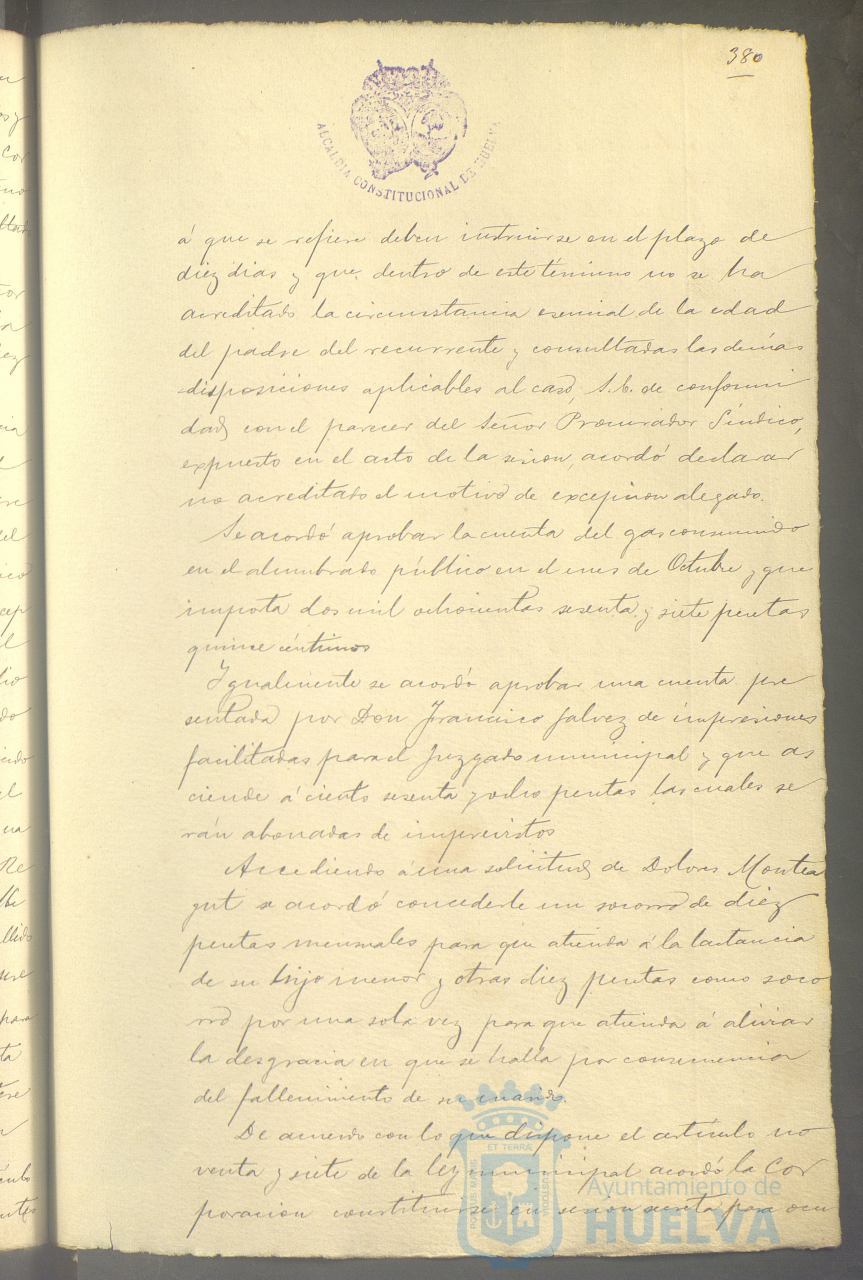 380
ALCALDIA CONSTITUCIONAL DE HUELVA
á que se refiere deben instruirse en el plazo de
diez dias y que dentro de este término no se ha
acreditado la circunstancia esencial de la edad
del padre del recurrente y consultadas las demás
disposiciones aplicables al caso, S.E. de conformi
dad con el parecer del Señor Procurador Síndico,
expuesto en el acto de la sesion, acordó declarar
no acreditado el motivo de excepcion alegado.
Se acordó aprobar la cuenta del gas consumido
en el alumbrado público en el mes de Octubre y que
importa dos mil ochocientas sesenta y siete pesetas
quince céntimos
Igualmente se acordó aprobar una cuenta pre
sentada por Don Francisco Galvez de impresiones
facilitadas para el Juzgado municipal y que as
ciende á ciento sesenta y ocho pesetas las cuales se
rán abonadas de imprevistos
Accediendo á una solicitud de Dolores Montea
gut se acordó concederle un socorro de diez
pesetas mensuales para que atienda á la lactancia
de su hijo menor y otras diez pesetas como soco
rro por una sola vez para que atienda á aliviar
la desgracia en que se halla por consecuencia
del fallecimiento de su marido.
De acuerdo con lo que dispone el artículo no
venta y siete de la ley municipal acordó la Cor
poracion constituirse en sesion secreta para ocu
ET TERRAE
Ayuntamiento de
HUELVA